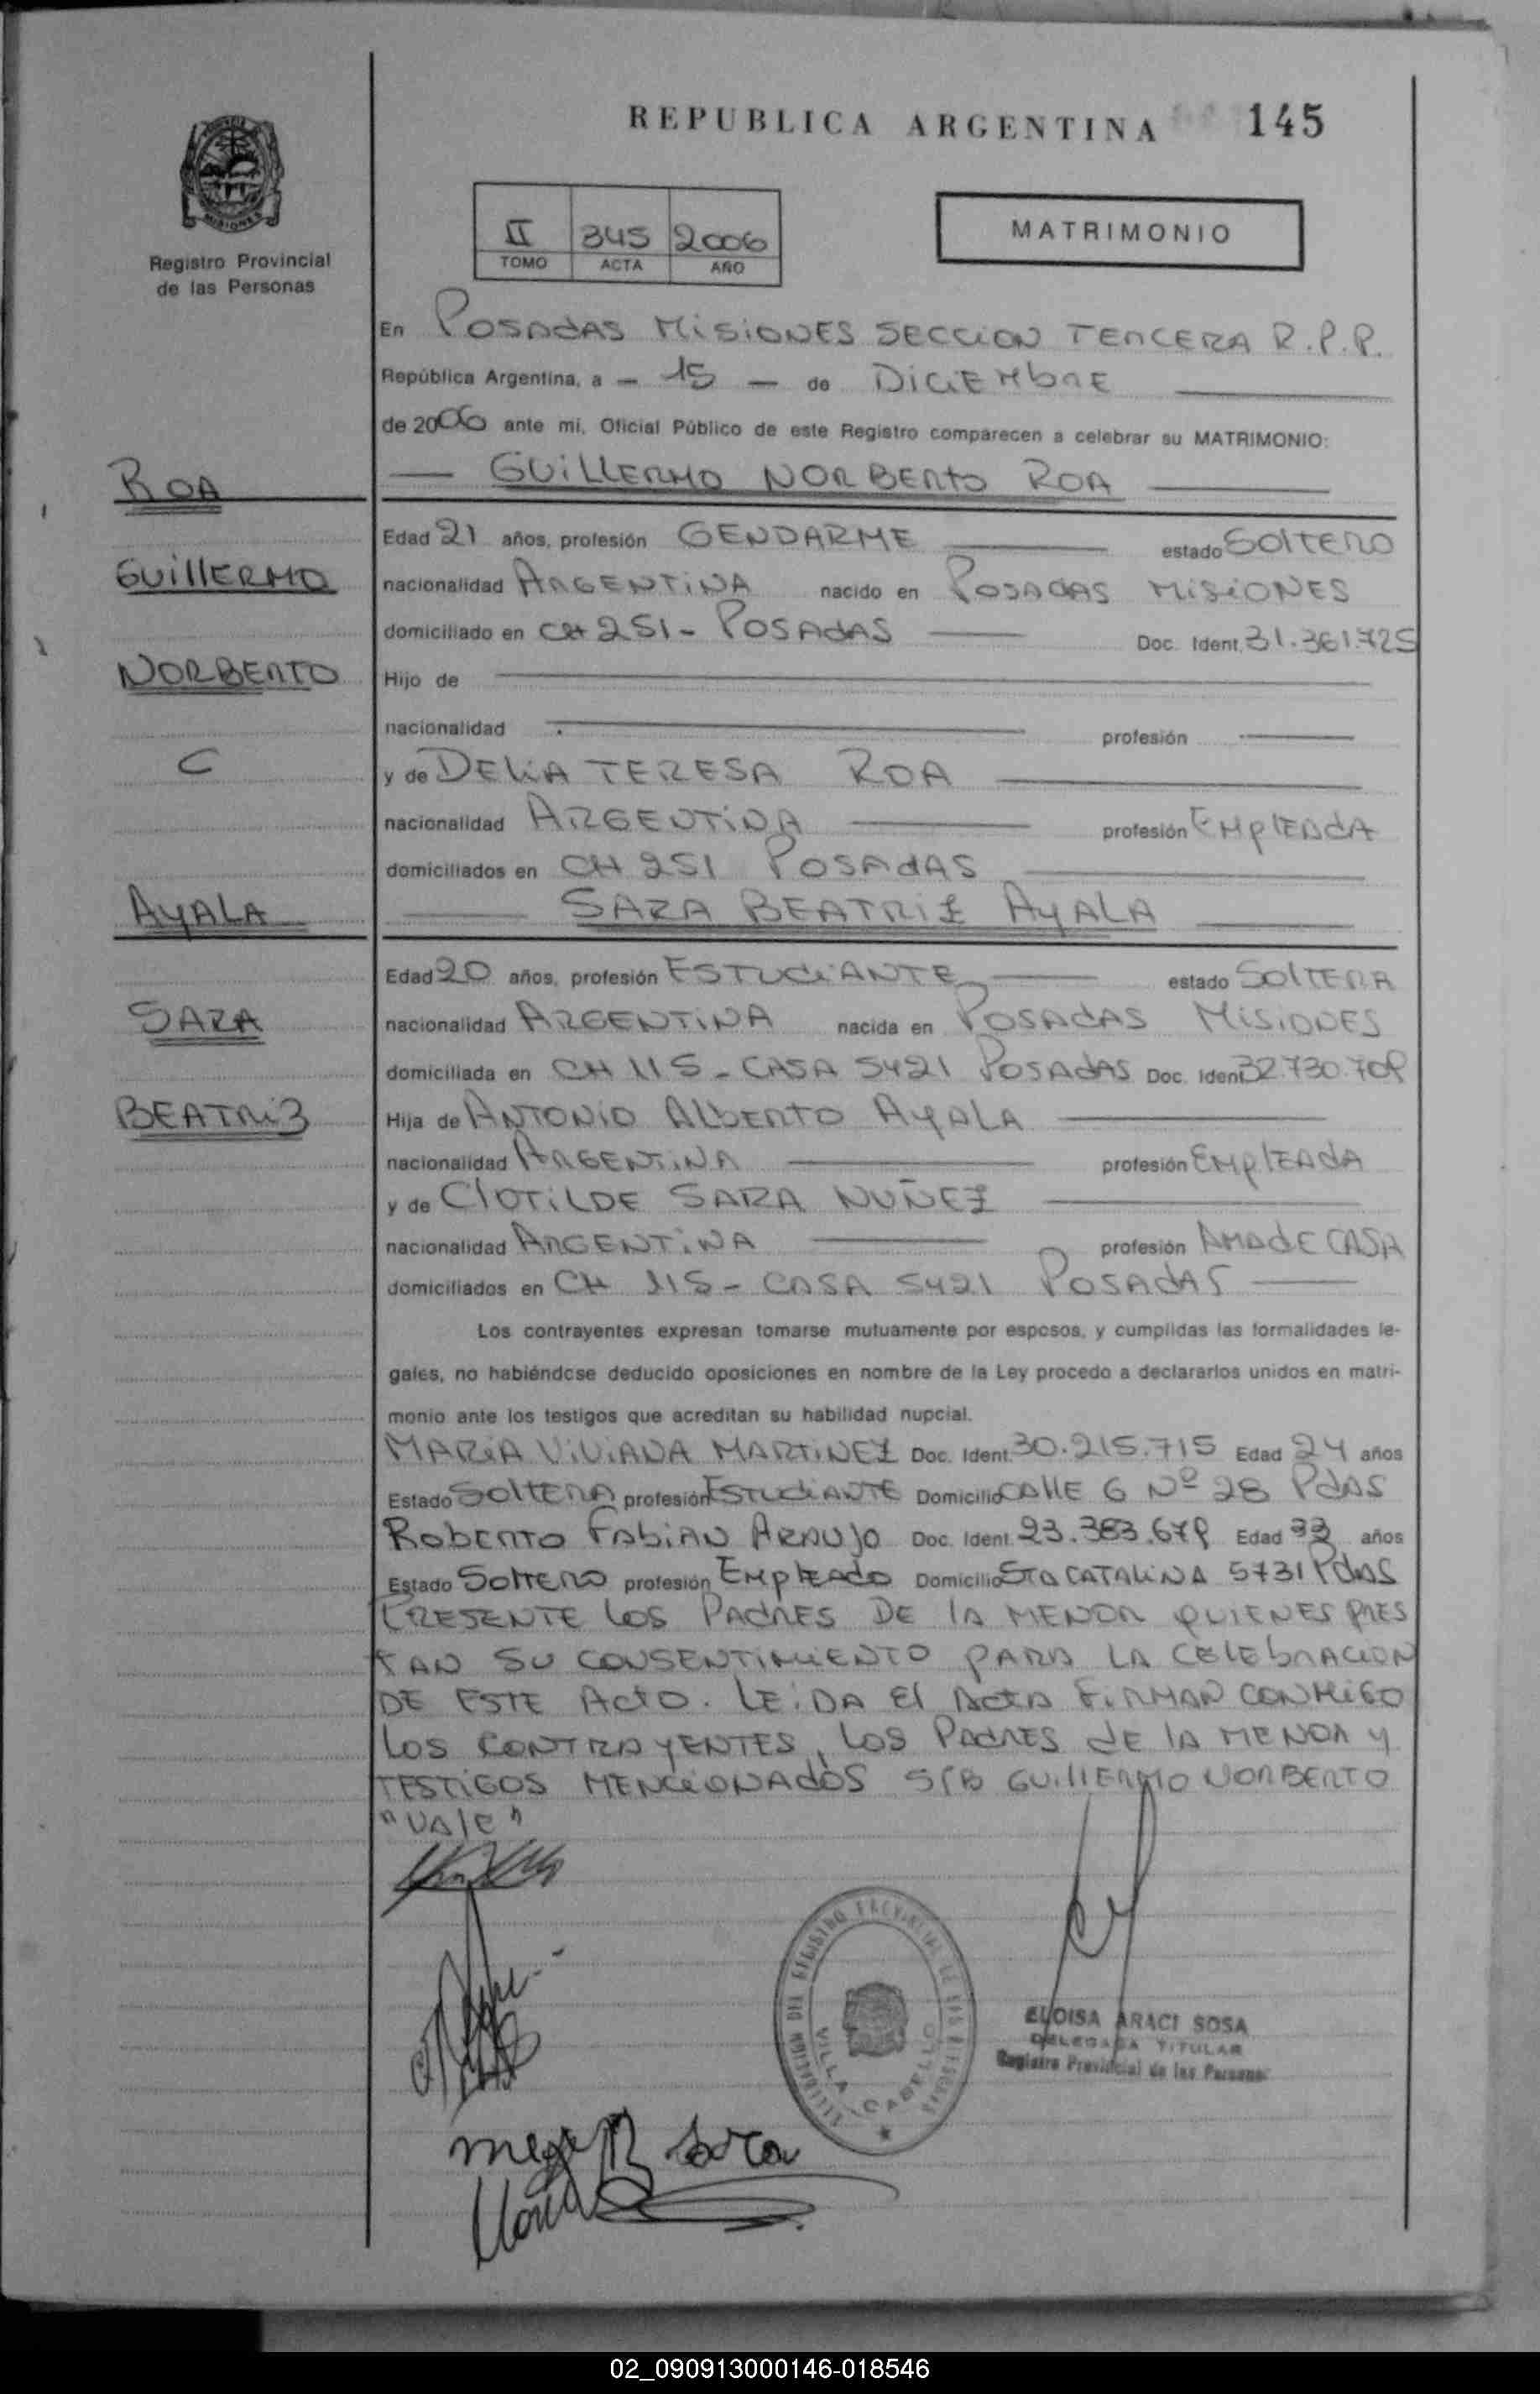 REPUBLICA ARGENTINA 145
MISIONES
Registro Provincial
de las Personas
II 345 2006
TOMO ACTA AÑO
MATRIMONIO
En POSADAS MISIONES SECCION TERCERA R.P.P.
República Argentina, a - 15 - de DICIEMBRE
de 2006 ante mi, Oficial Público de este Registro comparecen a celebrar su MATRIMONIO:
ROA
GUILLERMO NORBERTO ROA
Edad 21 años, profesión GENDARME estado SOLTERO
GUILLERMO
nacionalidad ARGENTINA nacido en POSADAS MISIONES
domiciliado en CH 251 - POSADAS Doc. Ident. 31.361.725
NORBERTO
Hijo de
nacionalidad profesión
C
y de DELIA TERESA ROA
nacionalidad ARGENTINA profesión EMPLEADA
domiciliados en CH 251 POSADAS
AYALA
SARA BEATRIZ AYALA
Edad 20 años, profesión ESTUDIANTE estado SOLTERA
SARA
nacionalidad ARGENTINA nacida en POSADAS MISIONES
domiciliada en CH 115 - CASA 5421 POSADAS Doc. Ident
BEATRIZ
Hija de ANTONIO ALBERTO AYALA
nacionalidad ARGENTINA profesión EMPLEADA
y de CLOTILDE SARA NUÑEZ
nacionalidad ARGENTINA profesión AMA DE CASA
domiciliados en CH 115 - CASA 5421 POSADAS
Los contrayentes expresan tomarse mutuamente por esposos, y cumplidas las formalidades le-
gales, no habiéndose deducido oposiciones en nombre de la Ley procedo a declararlos unidos en matri-
monio ante los testigos que acreditan su habilidad nupcial.
MARIA VIVIANA MARTINEZ Doc. Ident. 30.215.715 Edad 24 años
Estado SOLTERA profesión ESTUDIANTE Domicilio CALLE 6 Nº 28 PDAS
ROBERTO FABIAN ARAUJO Doc. Ident. Edad 33 años
Estado SOLTERO profesión EMPLEADO Domicilio STA CATALINA 5731 PDAS
PRESENTE LOS PADRES DE LA MENOR QUIENES PRES
TAN SU CONSENTIMIENTO PARA LA CELEBRACION
DE ESTE ACTO. LEIDA EL ACTA FIRMAN CONMIGO
LOS CONTRAYENTES, LOS PADRES DE LA MENOR Y
TESTIGOS MENCIONADOS S/B GUILLERMO NORBERTO
"VALE"
VILLA CABELLO
ELOISA ARACI SOSA
DELEGADA TITULAR
Registro Provincial de las Personas
02_090913000146-018546